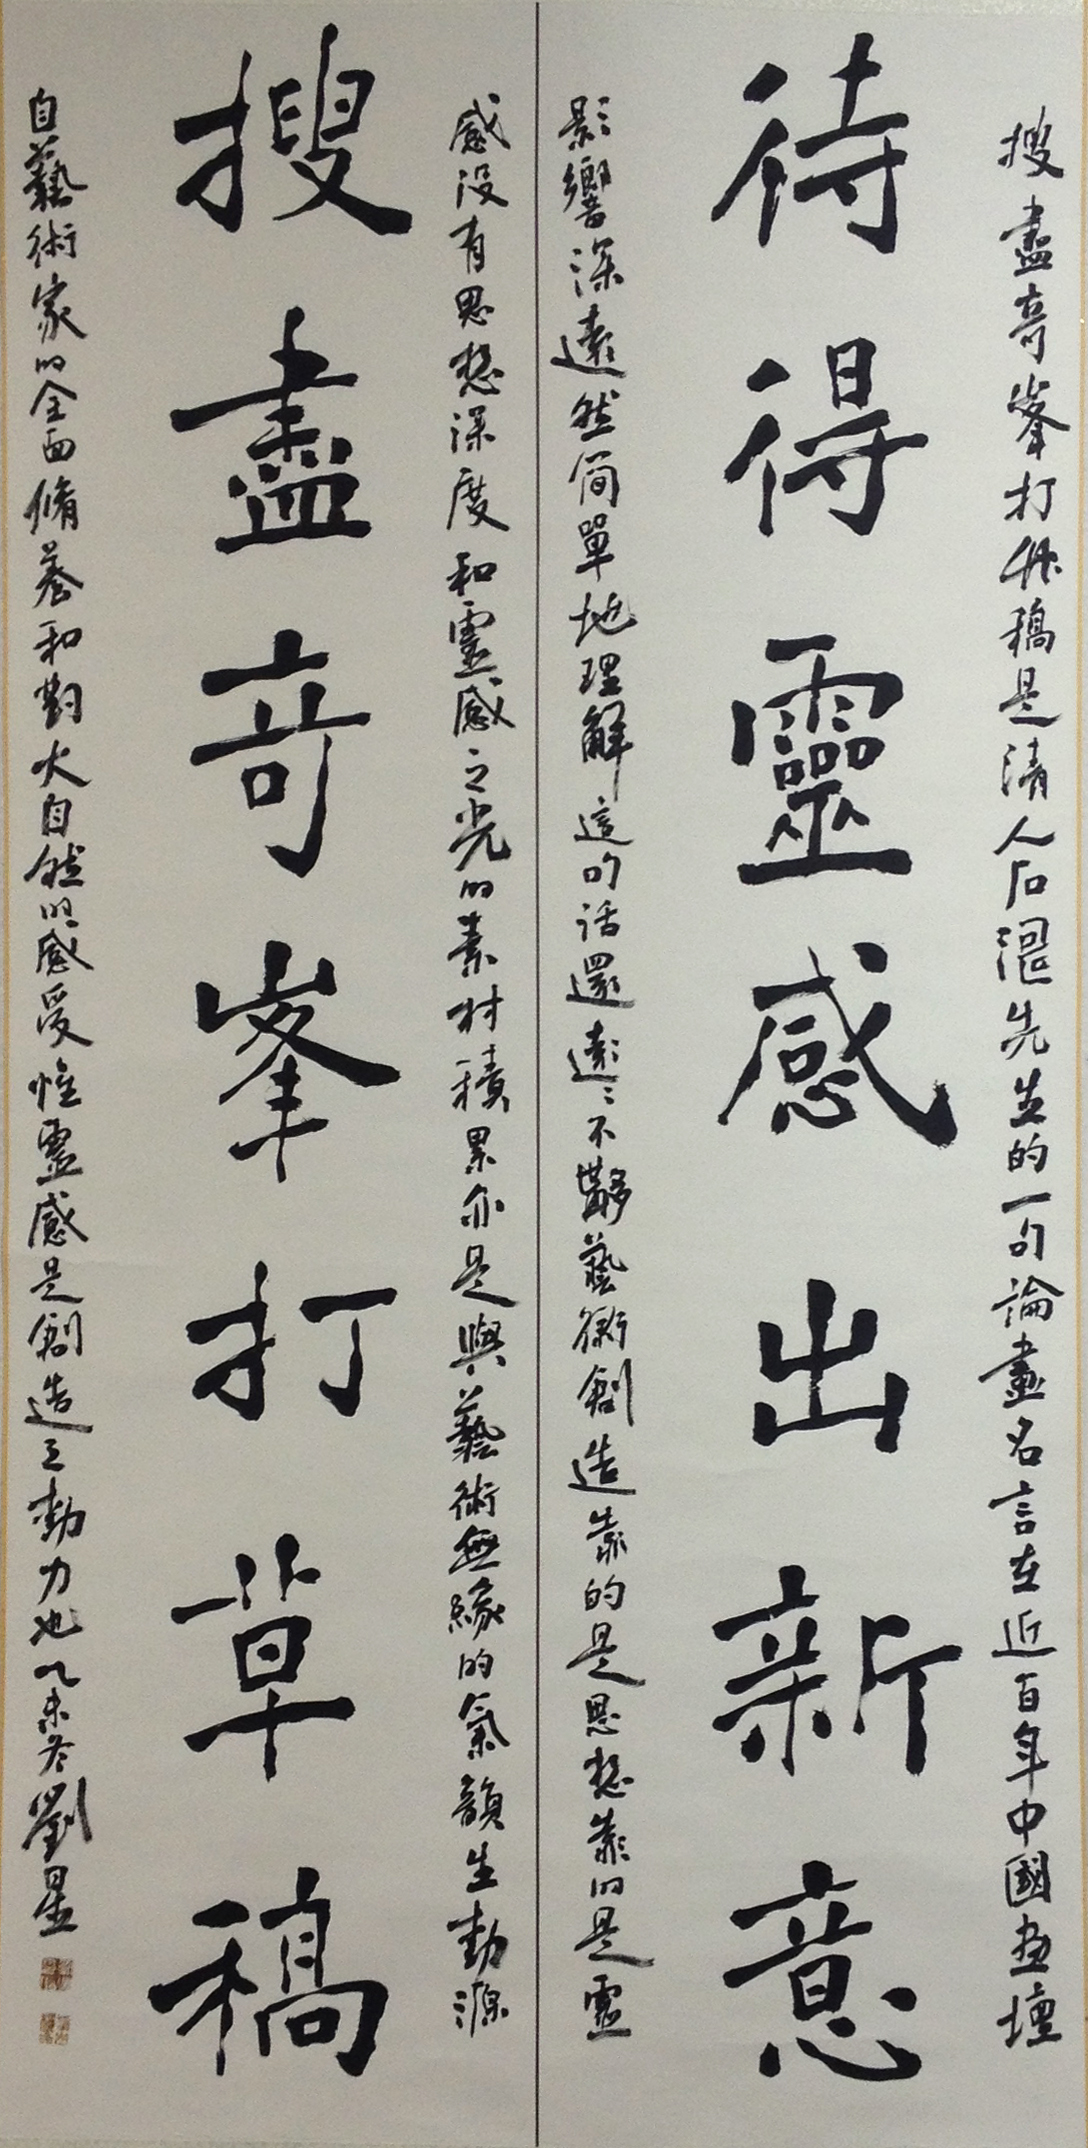 搜盡奇峯打草稿是清人石濤先生的一句論畫名言在近百年中國畫壇
待得靈感出新意
影響深遠然簡單地理解這句話還遠遠不夠藝術創造靠的是思想靠的是靈
感没有思想深度和靈感之光的素材積累亦是與藝術無緣的氣韻生動源
搜盡奇峯打草稿
自藝術家的全面脩養和對大自然的感受惟靈感是創造之動力也乙未冬劉星